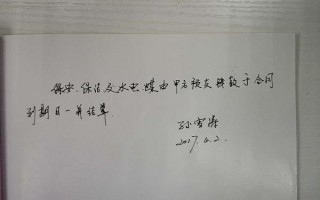 保安、保洁及水电、煤由甲方预支待款于合同
到期日一并结算.
孙雪
2017.6.2.